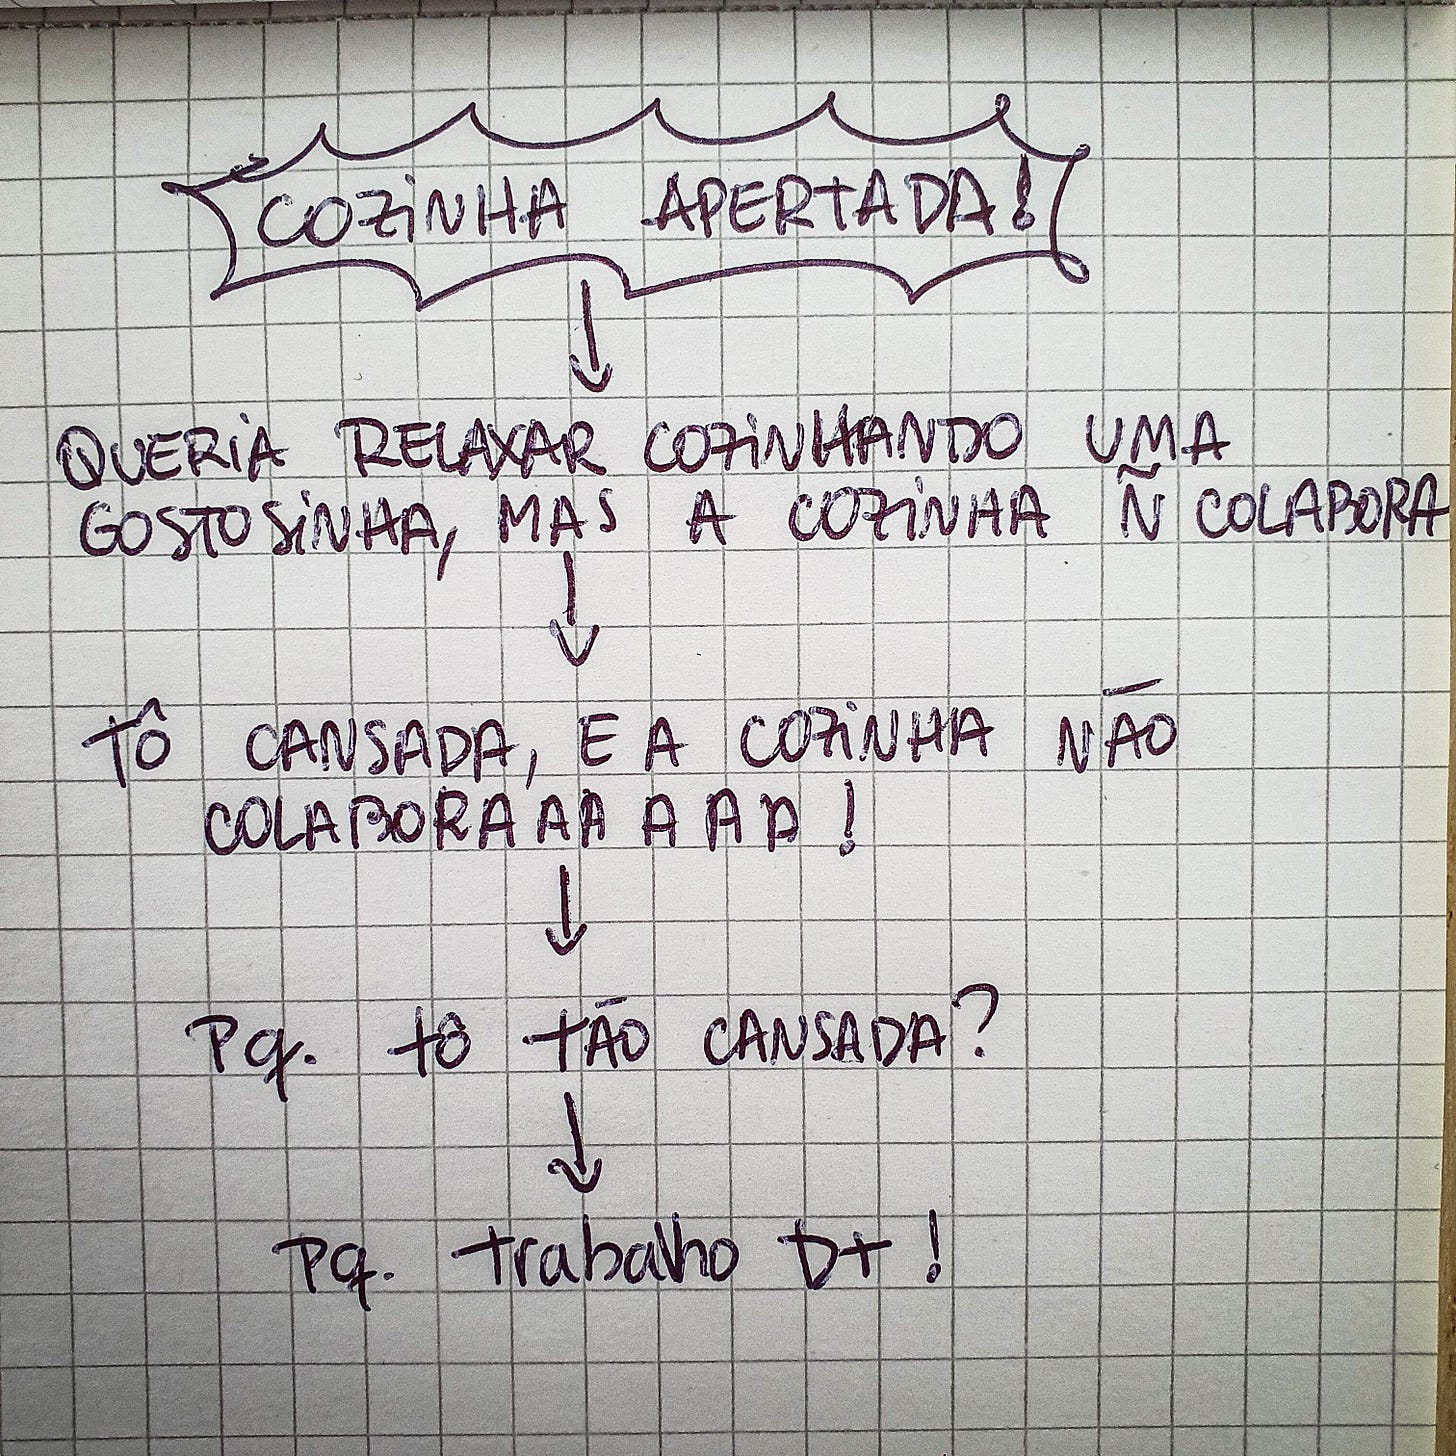 COZINHA APERTADA!
QUERIA RELAXAR COZINHANDO UMA
GOSTOSINHA, MAS A COZINHA Ñ COLABORA
TÔ CANSADA, E A COZINHA NÃO
COLABORAAAAAAA!
Pq. tô tÃO CANSADA?
Pq. trabalho D+!